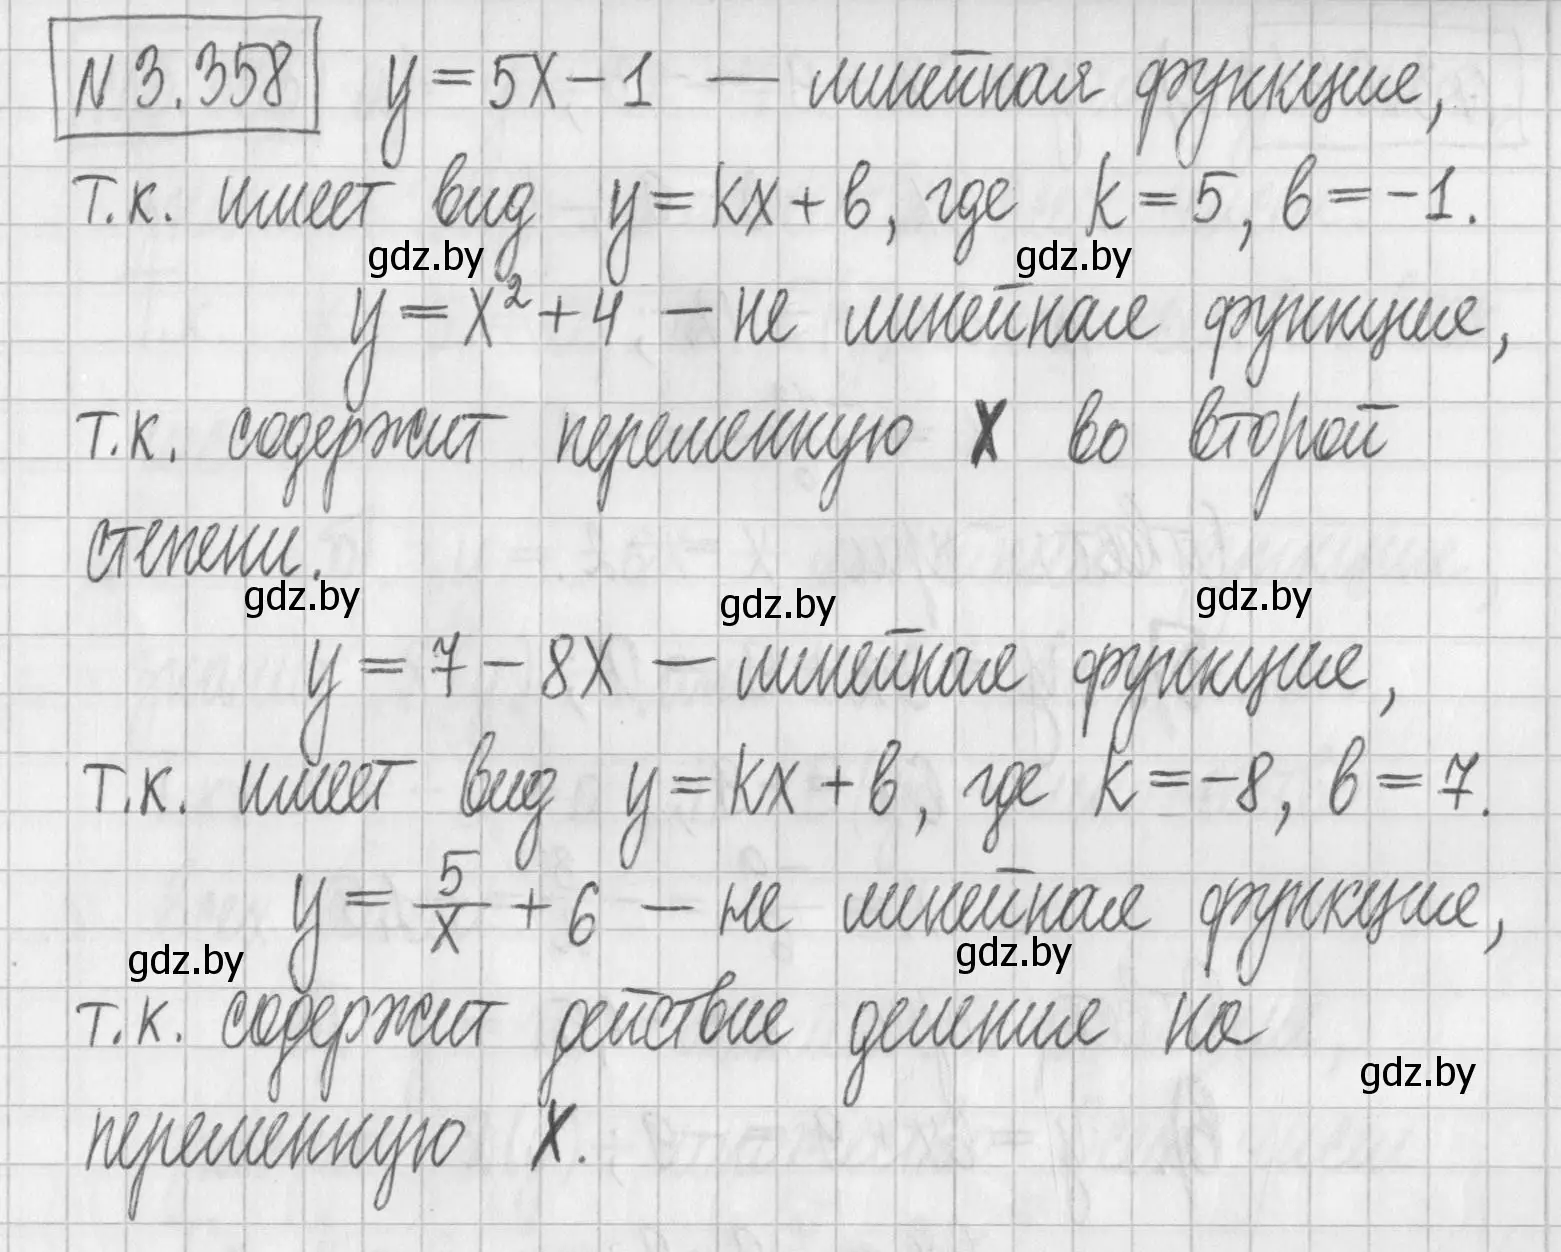 N 3.358 y = 5x - 1 — линейная функция,
т.к. имеет вид y = kx + b, где k = 5, b = -1.
gdz.by gdz.by
y = x² + 4 - не линейная функция,
т.к. содержит переменную x во второй
степени.
gdz.by gdz.by gdz.by
y = 7 - 8x — линейная функция,
т.к. имеет вид y = kx + b, где k = -8, b = 7.
y = 5/x + 6 - не линейная функция,
gdz.by gdz.by
т.к. содержит действие деления на
gdz.by
переменную x.